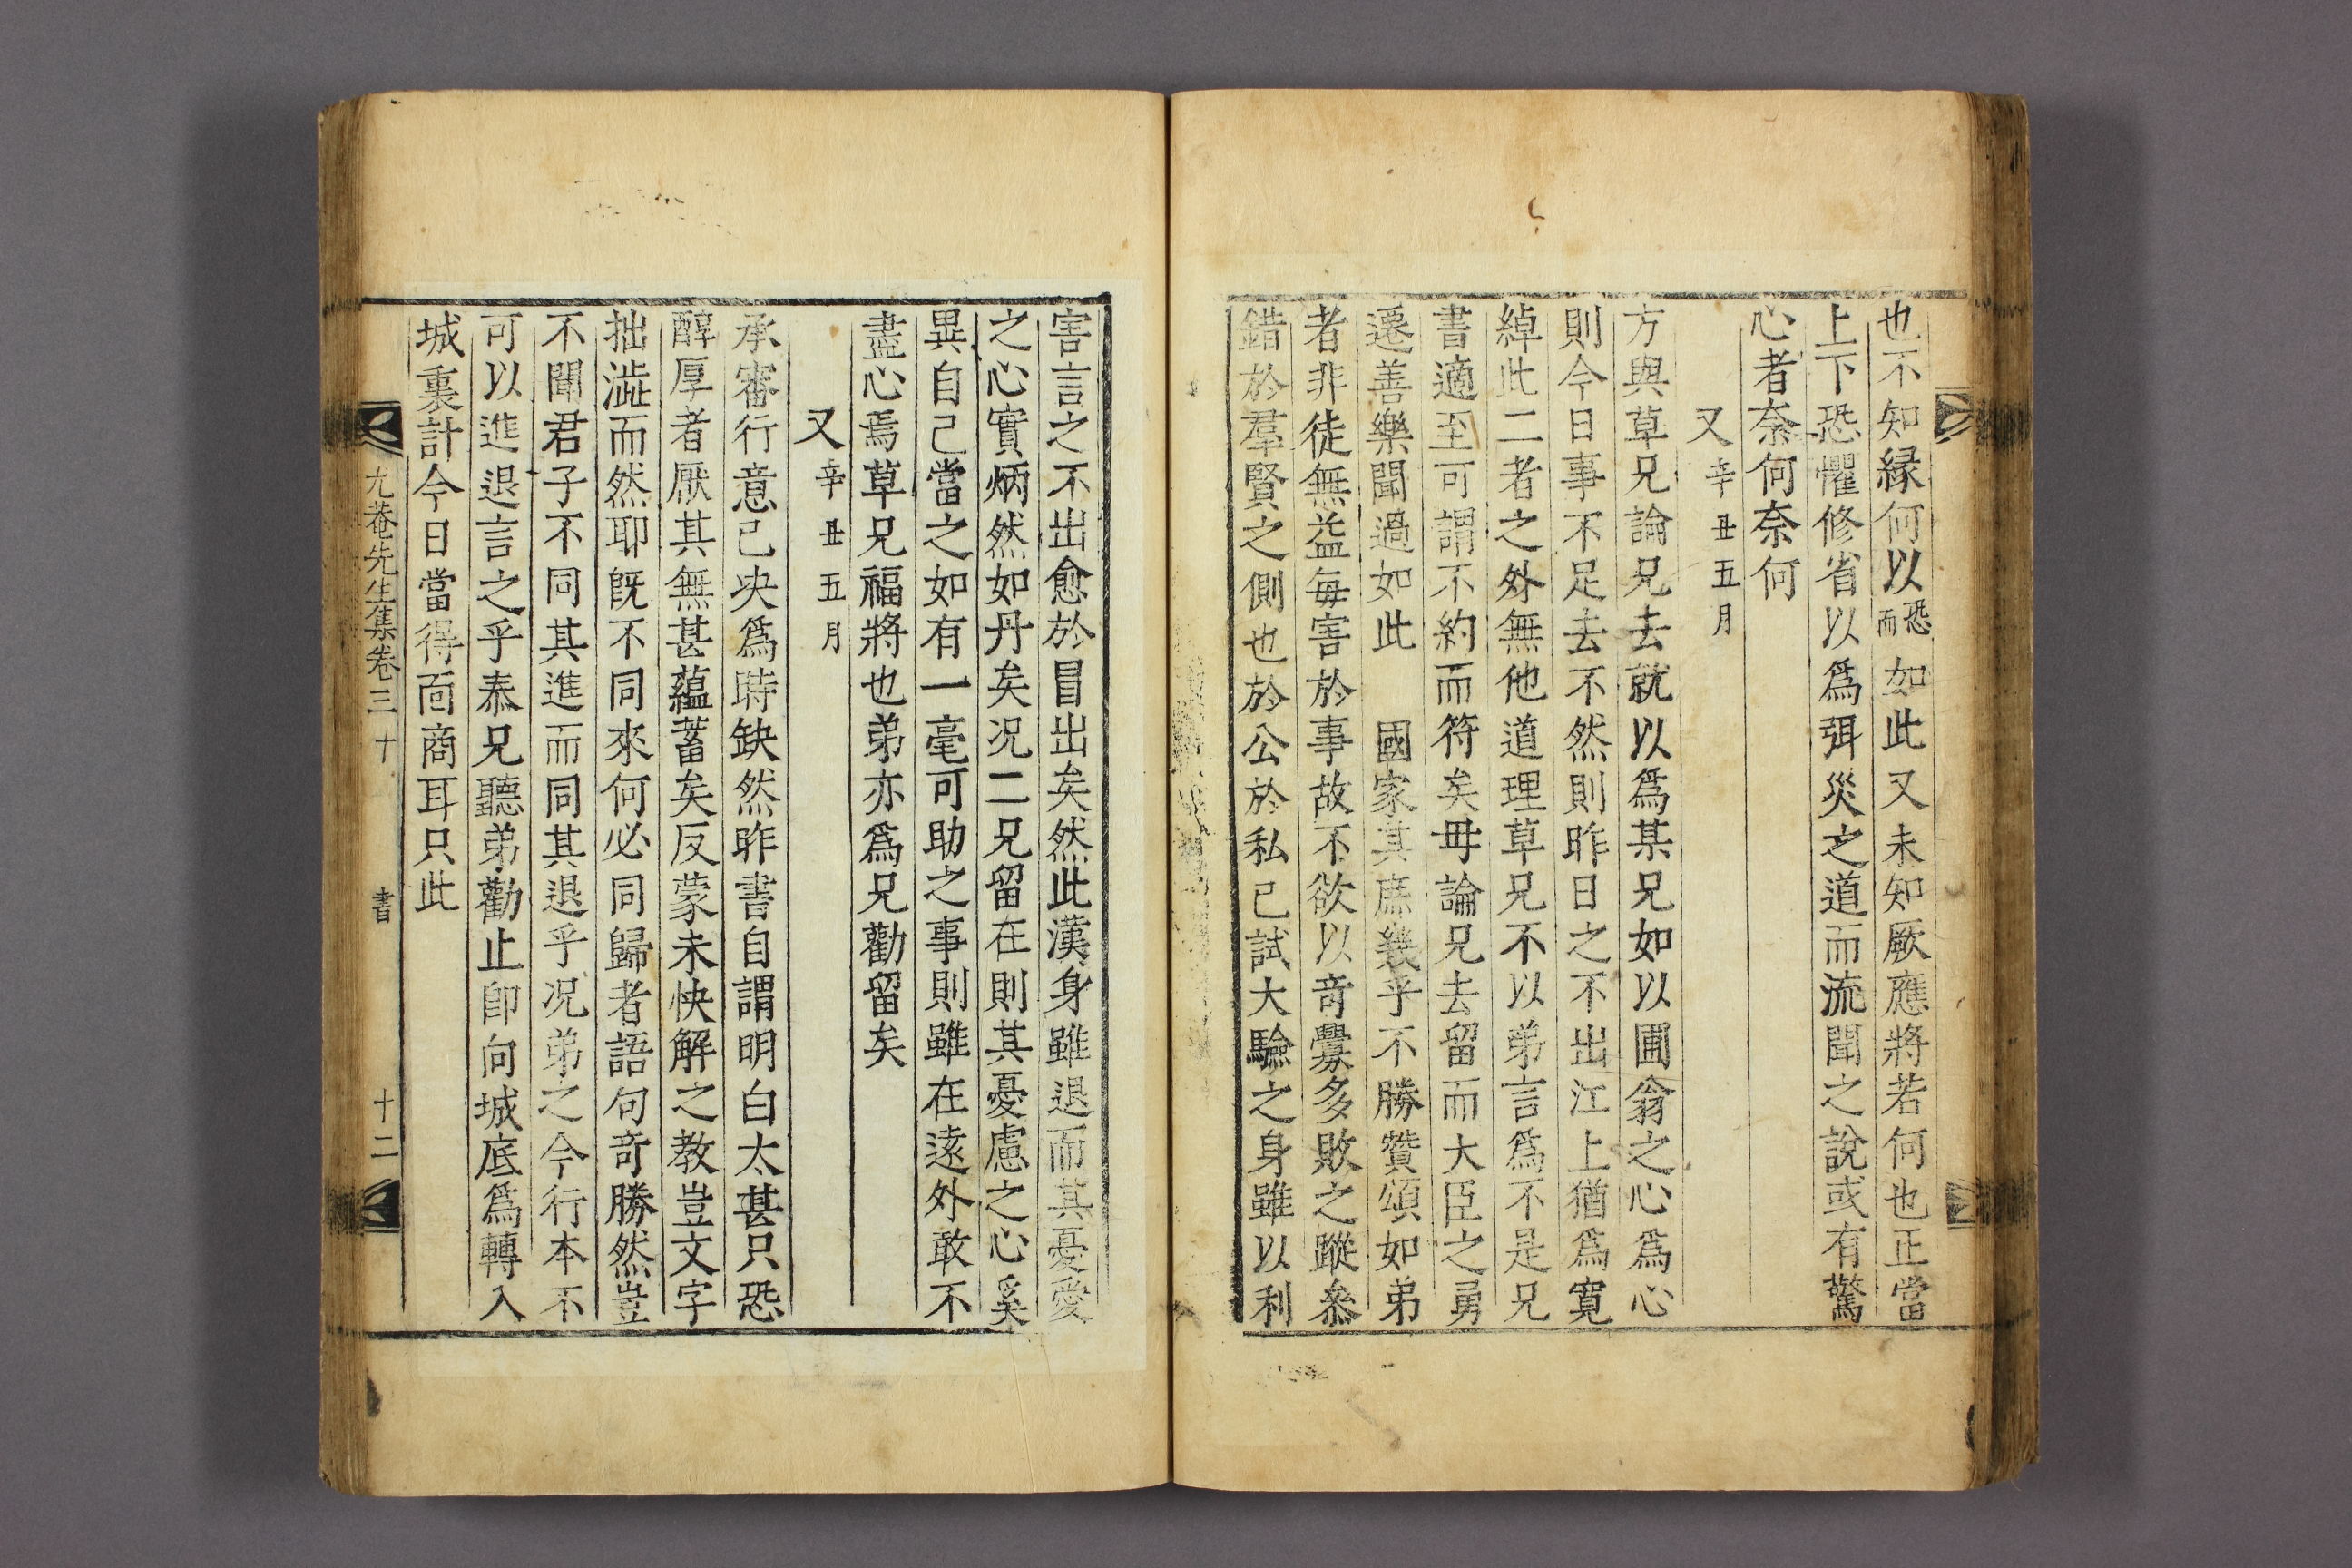 也不知緣何以恐而如此又未知厥應將若何也正當
上下恐懼修省以爲弭災之道而流聞之說或有驚
心者奈何奈何
又辛丑五月
方與草兄論兄去就以爲某兄如以圃翁之心爲心
則今日事不足去不然則昨日之不出江上猶爲寬
綽此二者之外無他道理草兄不以弟言爲不是兄
書適至可謂不約而符矣毋論兄去留而大臣之勇
遷善樂聞過如此 國家其庶幾乎不勝贊頌如弟
者非徒無益每害於事故不欲以奇釁多敗之蹤叅
錯於羣賢之側也於公於私已試大驗之身雖以利
害言之不出愈於冒出矣然此漢身雖退而其憂愛
之心實炳然如丹矣况二兄留在則其憂慮之心奚
異自己當之如有一毫可助之事則雖在遠外敢不
盡心焉草兄福將也弟亦爲兄勸留矣
又辛丑五月
承審行意已决爲時缺然昨書自謂明白太甚只恐
醇厚者厭其無甚蘊蓄矣反蒙未快解之教豈文字
拙澁而然耶旣不同來何必同歸者語句奇勝然豈
不聞君子不同其進而同其退乎况弟之今行本不
可以進退言之乎泰兄聽弟勸止卽向城底爲轉入
城裏計今日當得面商耳只此
九菴先生集卷三十 書 十二